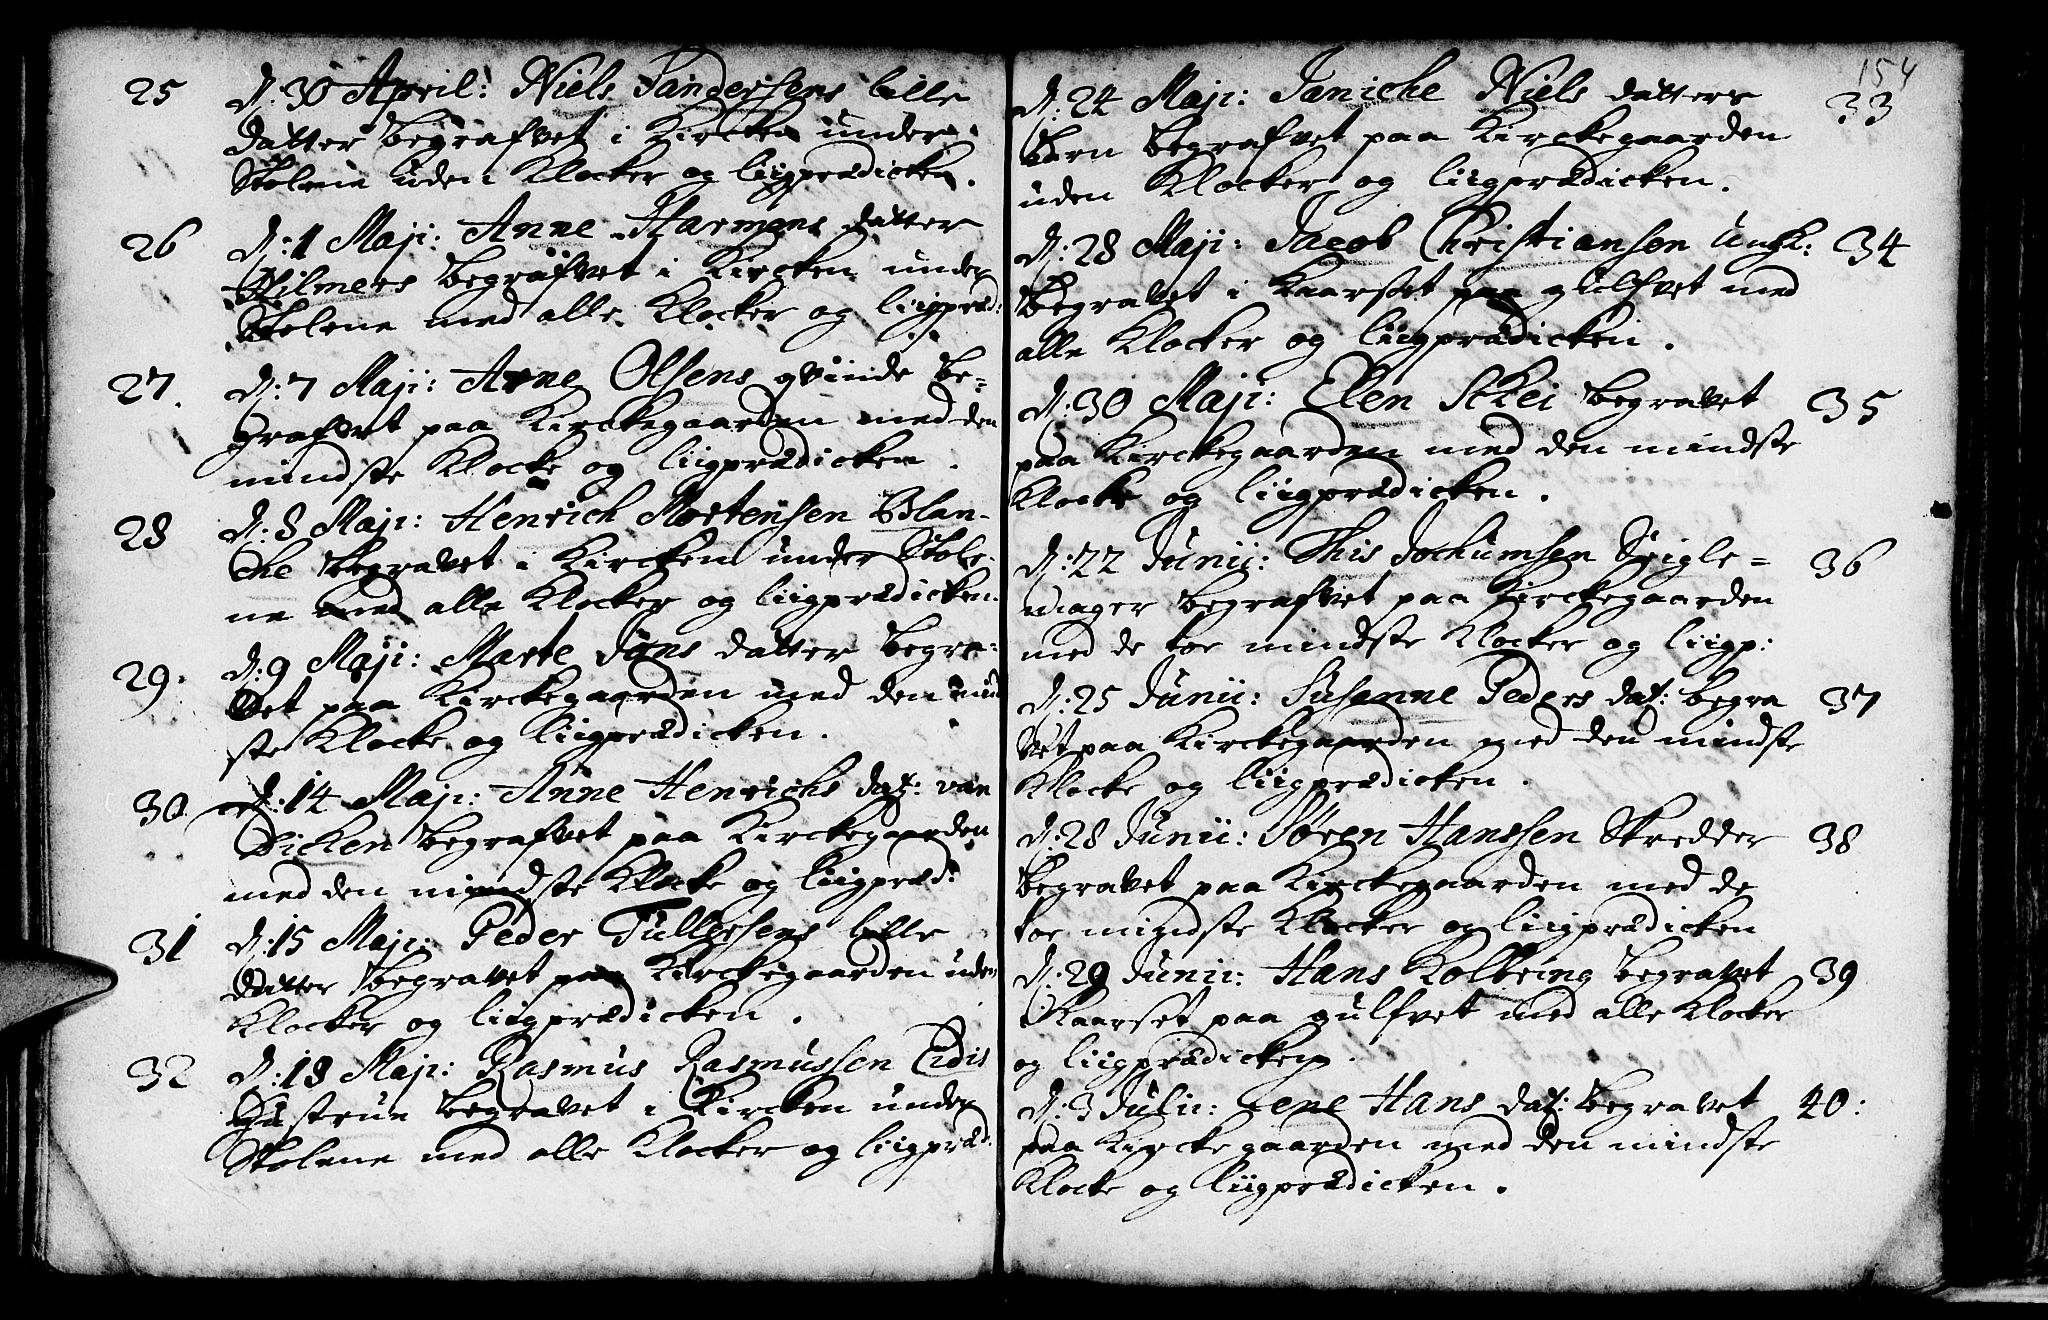 25 d: 30 April: Niels Sandersens lille
datter begrafvet i Kircken under
Stolene uden Klocker og liigprædicken.
26 d: 1 Maji: Anne Harmens datter
Hilmers begrafvet i Kircken under
Stolene med alle Klocker og liigpræd:
27. d: 7 Maji: Anne Olsens qvinde be=
grafvet paa Kirckegaarden med den
mindste Klocke og liigprædicken.
28 d: 8 Maji: Henrich Mortensen Blan-
che begravet i Kircken under Stole-
ne med alle Klocker og liigprædicken.
29. d: 9 Maji: Marte Jøns datter begra=
vet paa Kirckegaarden med den mind
ste Klocke og liigprædicken.
30 d: 14 Maji: Anne Henrichs dat: van
Dicken begrafvet paa Kirckegaarden
med den mindste Klocke og liigpræd:
31 d: 15 Maji: Peder Tullersens lille
datter begravet paa Kirckegaarden uden
Klocker og liigprædicken.
32 d: 18 Maji: Rasmus Rasmussen Eidis
Hustrue begravet i Kircken under
Stolene med alle Klocker og liigpræd:
154
d: 24 Maji: Janiche Niels datters 33
barn begrafvet paa Kirckegaarden
uden Klocker og liigprædicken.
d: 28 Maji: Jacob Christiansøn Ungk: 34
begravet i Kaarset paa gulfvet med
alle Klocker og liigprædicken.
d: 30 Maji: Elen Schei begravet 35
paa Kirckegaarden med den mindste
Klocke og liigprædicken.
d: 22 Junii: This Jochumsen Seigle= 36
mager begrafvet paa Kirckegaarden
med de toe mindste Klocker og liigp:
d: 25 Junii: Susanne Peders dat: begra 37
vet paa Kirckegaarden med den mindste
Klocke og liigprædicken.
d: 28 Junii: Søren Hanssen Skredder 38
begravet paa Kirckegaarden med de
toe mindste Klocker og liigprædicken
d: 29 Junii: Hans Kolbeing begravet 39
i Kaarset paa gulfvet med alle Klocker
og liigprædicken.
d: 3 Julii: Lene Hans dat: begravet 40:
paa Kirckegaarden med den mindste
Klocke og liigprædicken.